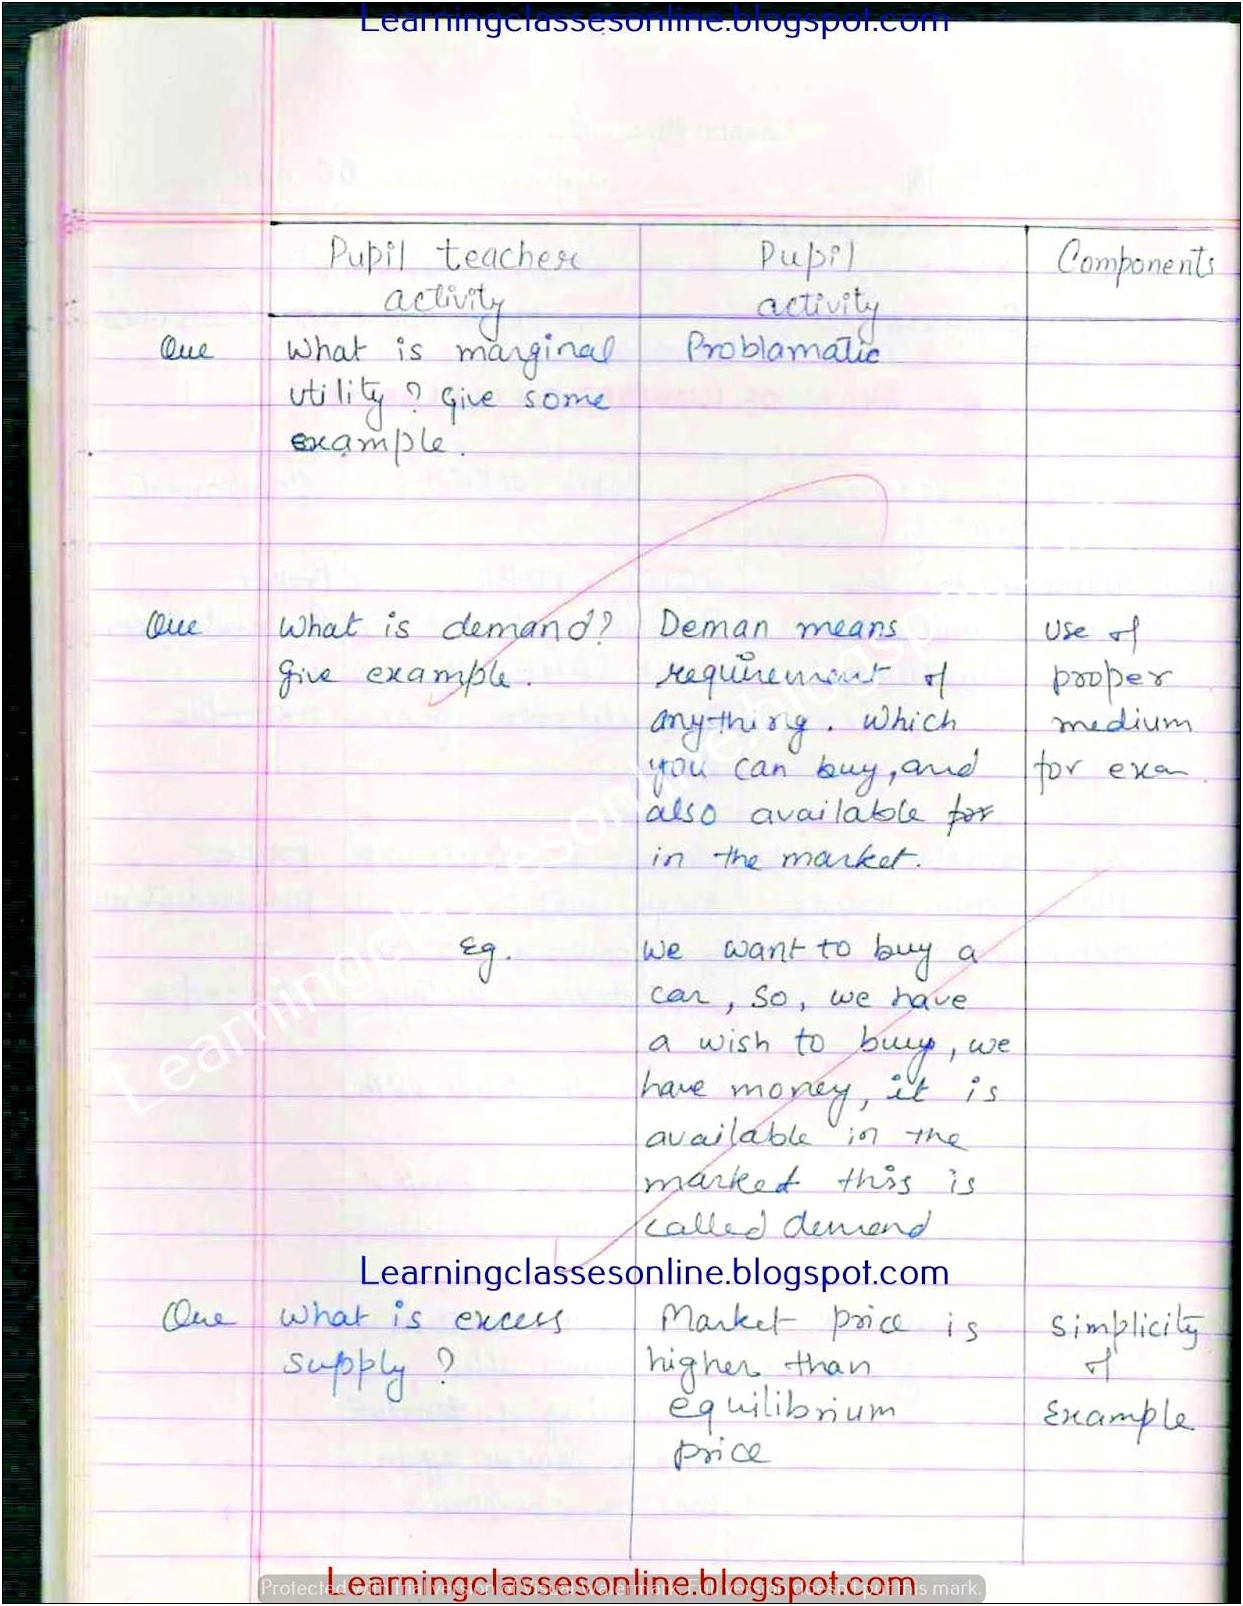 Learningclassesonline.blogspot.com
Pupil teacher activity | Pupil activity | Components
Que What is marginal | Problamatic
utility? Give some
example.
Que What is demand? | Deman means | Use of
Give example. | requirement of | proper
anything. Which | medium
you can buy, and | for exam.
also available for
in the market.
Eg. | We want to buy a
car, so, we have
a wish to buy, we
have money, it is
available in the
market this is
called demand
Learningclassesonline.blogspot.com
Que What is excess | Market price is | Simplicity
supply? | higher than | of
equilibrium | Example
price
Learningclassesonline.blogspot.com
Protected with trial version of Visual Watermark. Full version doesn't put this mark.
Learningclassesonline.blogspot.com